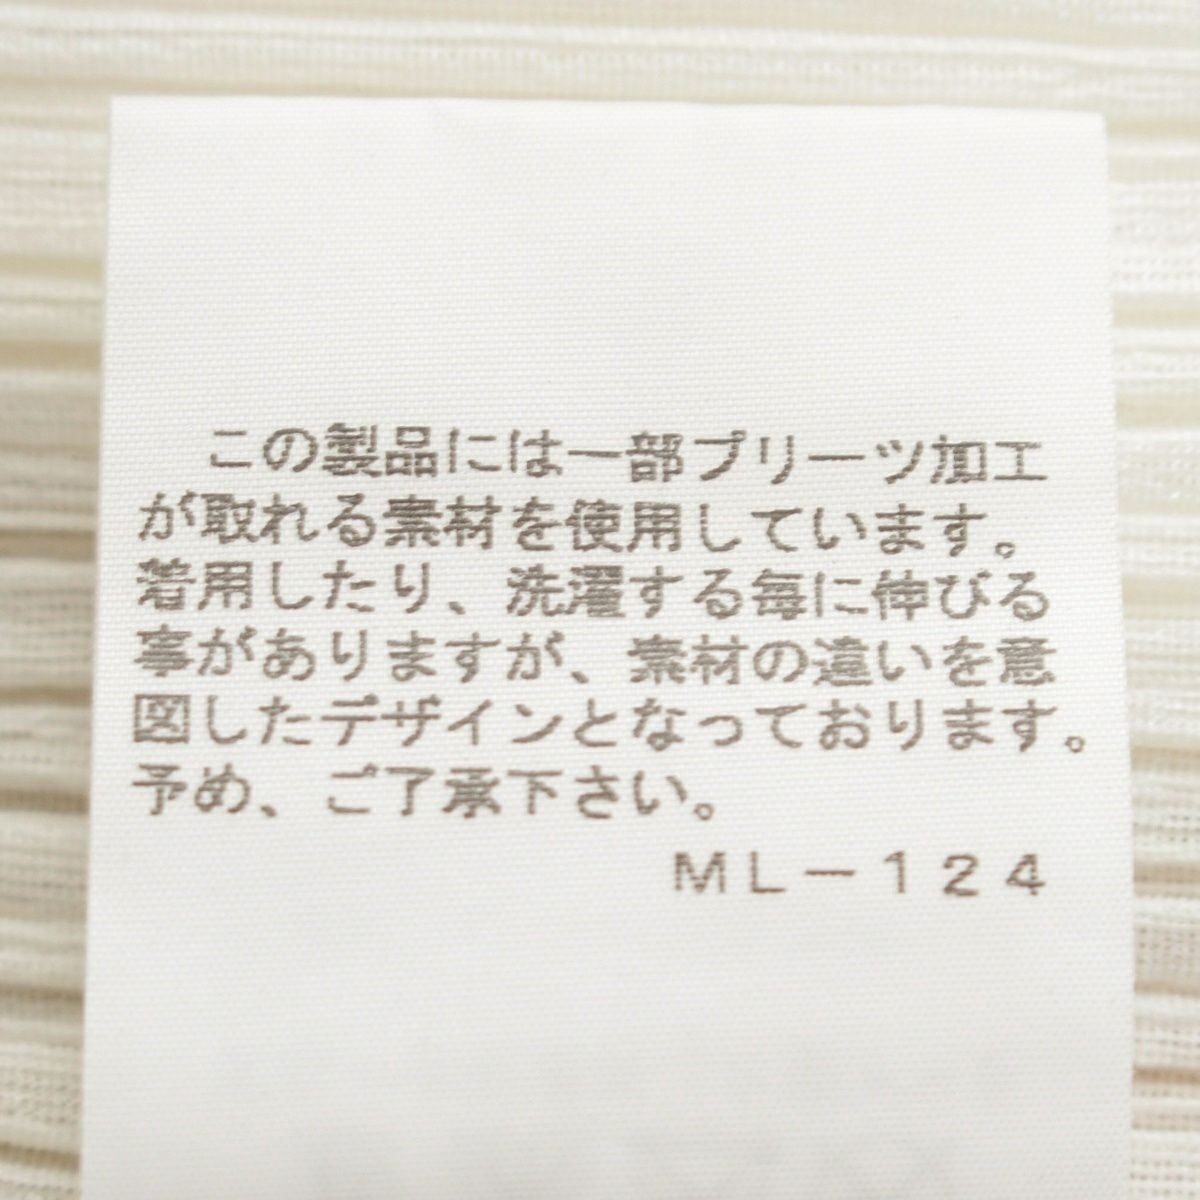 この製品には一部プリーツ加工
が取れる素材を使用しています。
着用したり、洗濯する毎に伸びる
事がありますが、素材の違いを意
図したデザインとなっております。
予め、ご了承下さい。
ＭＬ－１２４